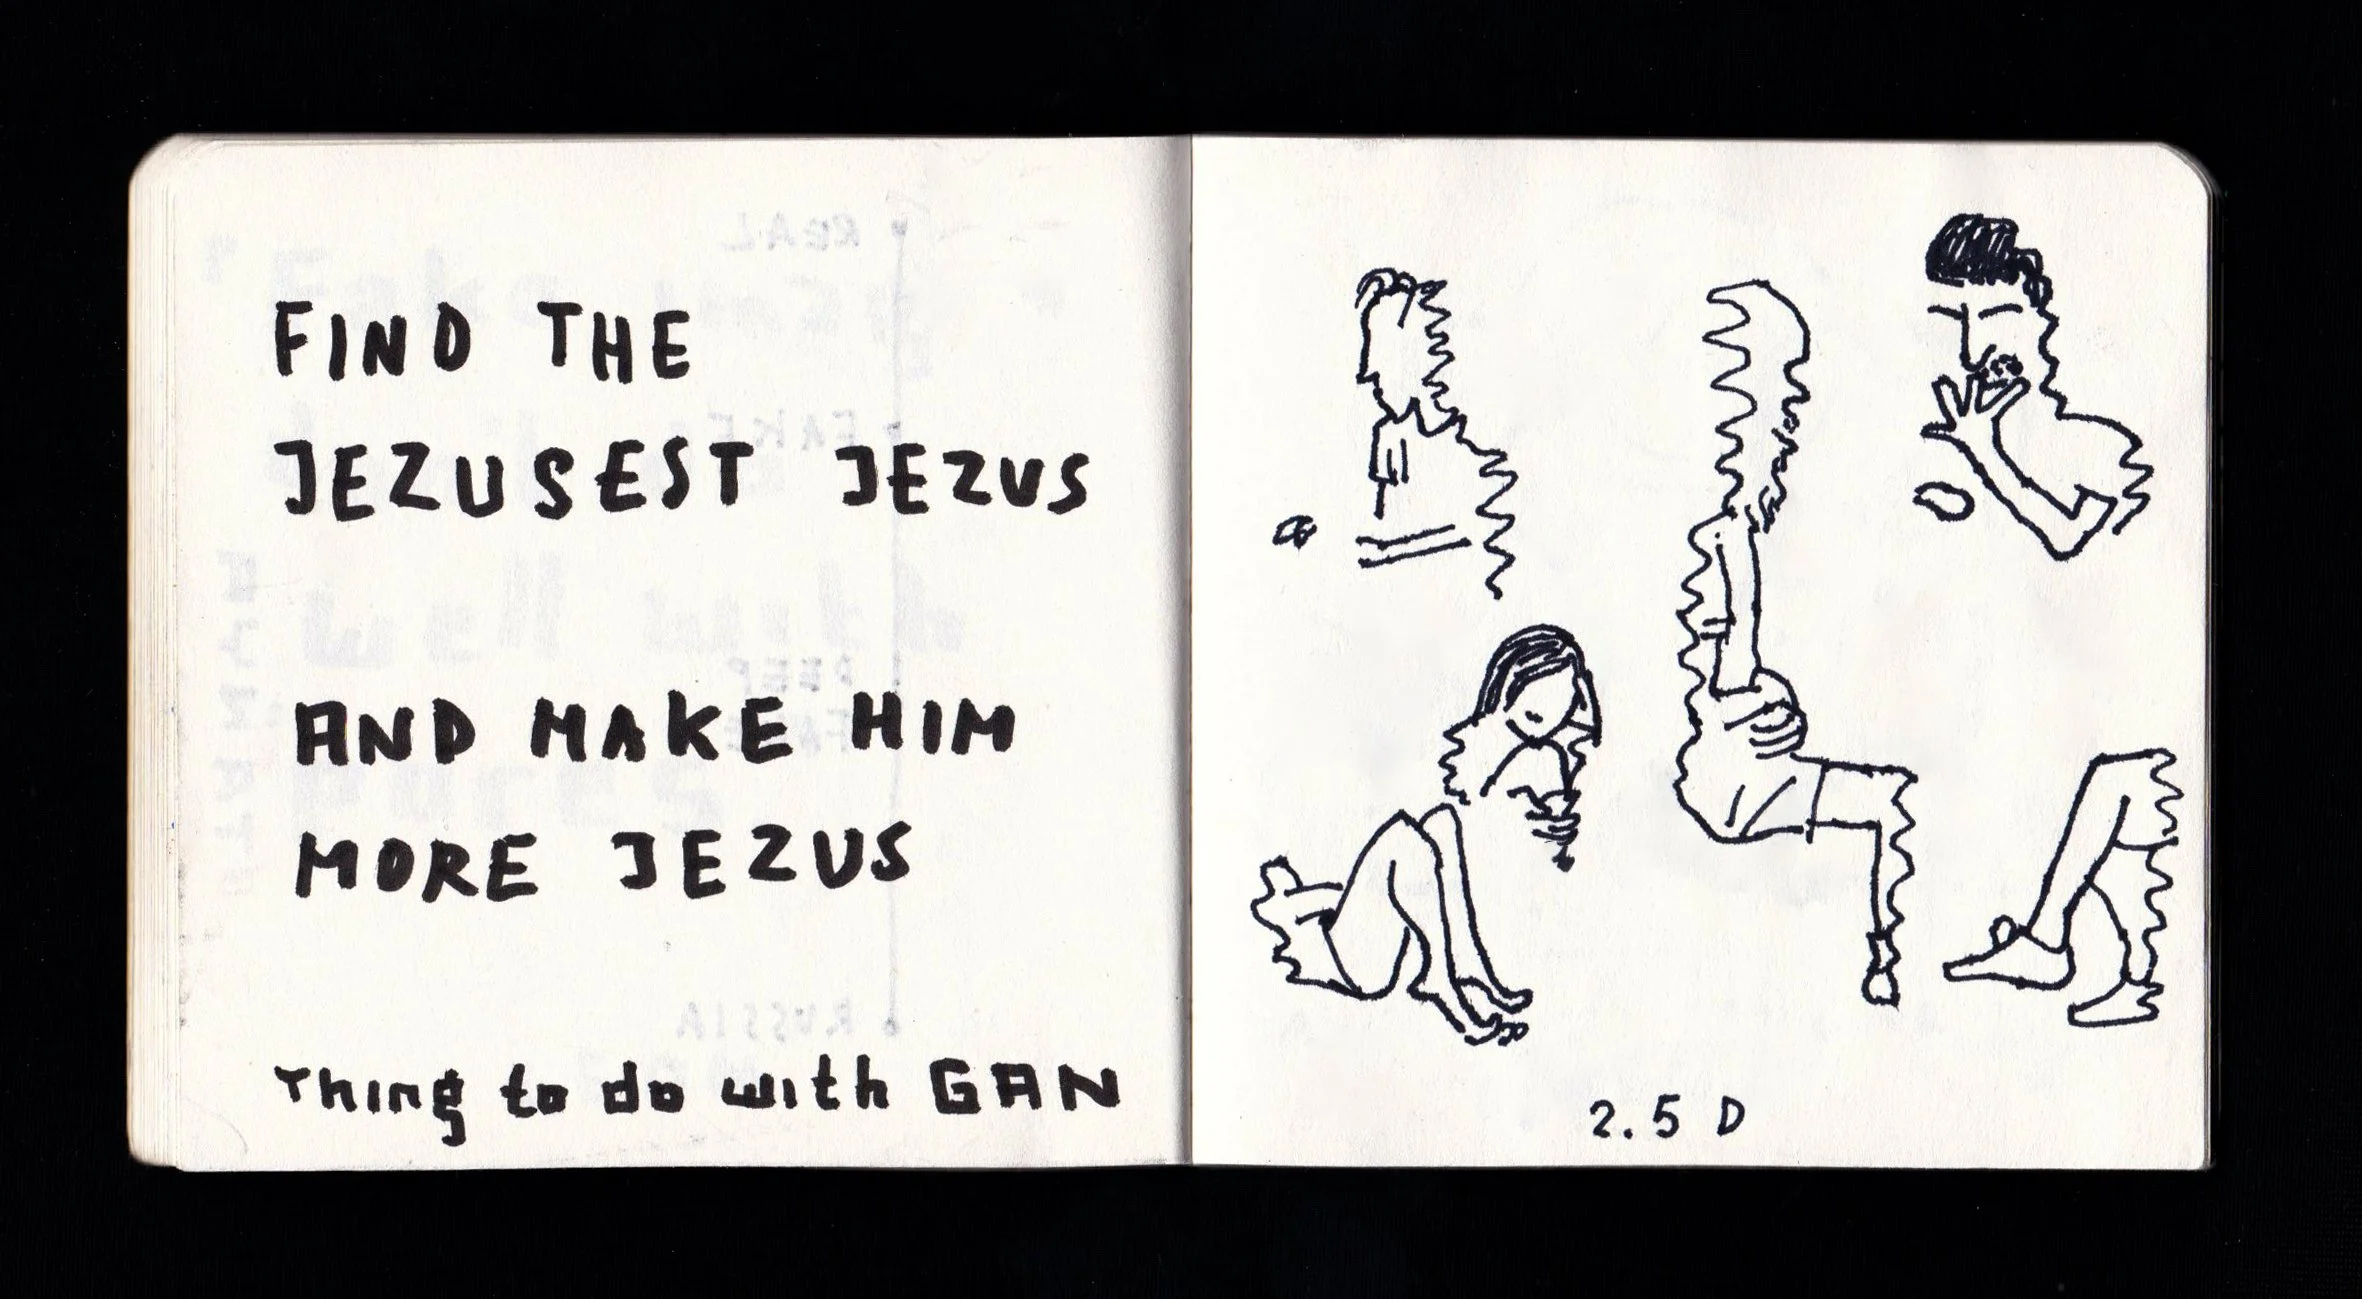 FIND THE
JEZUSEST JEZUS
AND MAKE HIM
MORE JEZUS
Thing to do with GAN
2.5 D